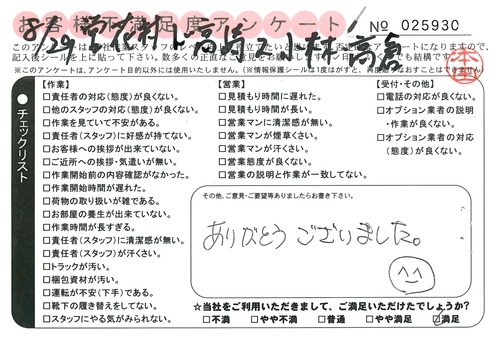 お客様不満足度アンケート
No 025930
8/29
記入後シールを上に貼って下さい。
※このアンケートは、アンケート目的以外には使用いたしません。
チェックリスト
【作業】
□責任者の対応(態度)が良くない。
□他のスタッフの対応(態度)が良くない。
□作業を見ていて不安がある。
□責任者(スタッフ)に好感が持てない。
□お客様への挨拶が出来ていない。
□ご近所への挨拶・気遣いが無い。
□作業開始前の内容確認がなかった。
□作業開始時間が遅れた。
□荷物の取り扱いが雑である。
□お部屋の養生が出来ていない。
□作業時間が長すぎる。
□責任者(スタッフ)に清潔感が無い。
□責任者(スタッフ)が汗くさい。
□トラックが汚い。
□梱包資材が汚い。
□運転が不安(下手)である。
□靴下の履き替えをしてない。
□スタッフにやる気がみられない。
【営業】
□見積もり時間に遅れた。
□見積もり時間が長い。
□営業マンに清潔感が無い。
□営業マンが煙草くさい。
□営業マンが汗くさい。
□営業態度が良くない。
□営業の説明と作業が一致してない。
【受付・その他】
□電話の対応が良くない。
□オプション業者の説明
・作業が良くない。
□オプション業者の対応
(態度)が良くない。
その他、ご意見・ご要望等ありましたらお書き下さい。
ありがとうございました。
☆当社をご利用いただきまして、ご満足いただけたでしょうか?
□不満 □やや不満 □普通 □やや満足 □満足